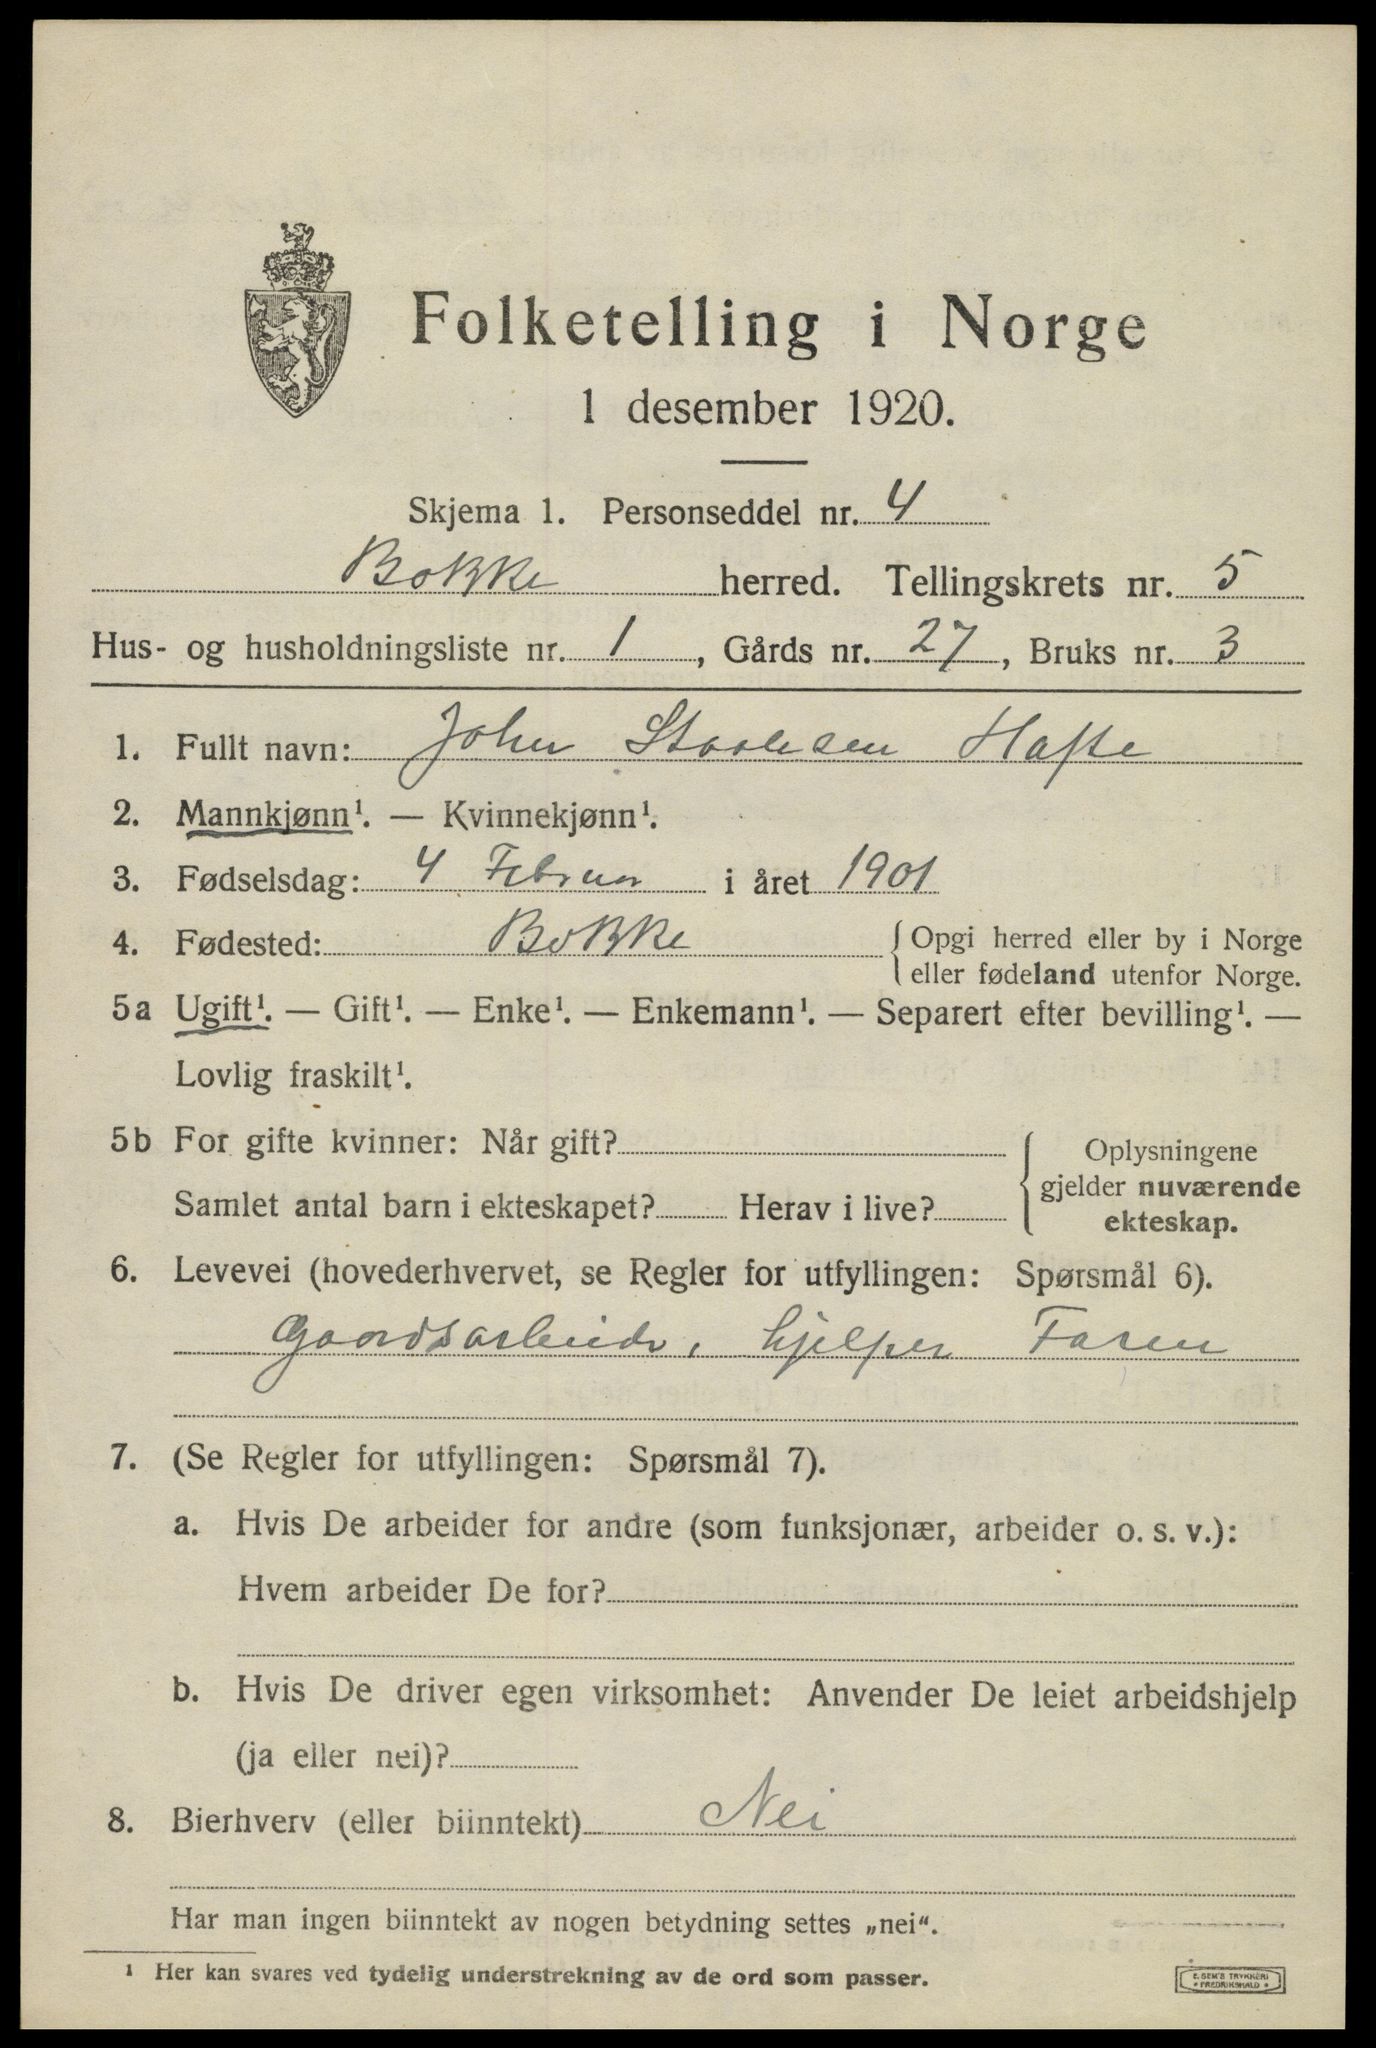 Folketelling i Norge
1 desember 1920.
Skjema 1. Personseddel nr. 4
Bokke herred. Tellingskrets nr. 5
Hus- og husholdningsliste nr. 1, Gårds nr. 27, Bruks nr. 3
1. Fullt navn: John Staalesen Hafte
2. Mannkjønn¹. — Kvinnekjønn¹.
3. Fødselsdag: 4 Februar i året 1901
4. Fødested: Bokke {Opgi herred eller by i Norge
eller fødeland utenfor Norge.
5a Ugift¹. — Gift¹. — Enke¹. — Enkemann¹. — Separert efter bevilling¹. —
Lovlig fraskilt¹.
5b For gifte kvinner: Når gift?
Samlet antal barn i ekteskapet? Herav i live?
{Oplysningene
gjelder nuværende
ekteskap.
6. Levevei (hovederhvervet, se Regler for utfyllingen: Spørsmål 6).
Gaardsarbeide, hjelper Faren
7. (Se Regler for utfyllingen: Spørsmål 7).
a. Hvis De arbeider for andre (som funksjonær, arbeider o. s. v.):
Hvem arbeider De for?
b. Hvis De driver egen virksomhet: Anvender De leiet arbeidshjelp
(ja eller nei)?
8. Bierhverv (eller biinntekt) Nei
Har man ingen biinntekt av nogen betydning settes „nei“.
¹ Her kan svares ved tydelig understrekning av de ord som passer.
E. SEM'S TRYKKERI
• FREDRIKSHALD •